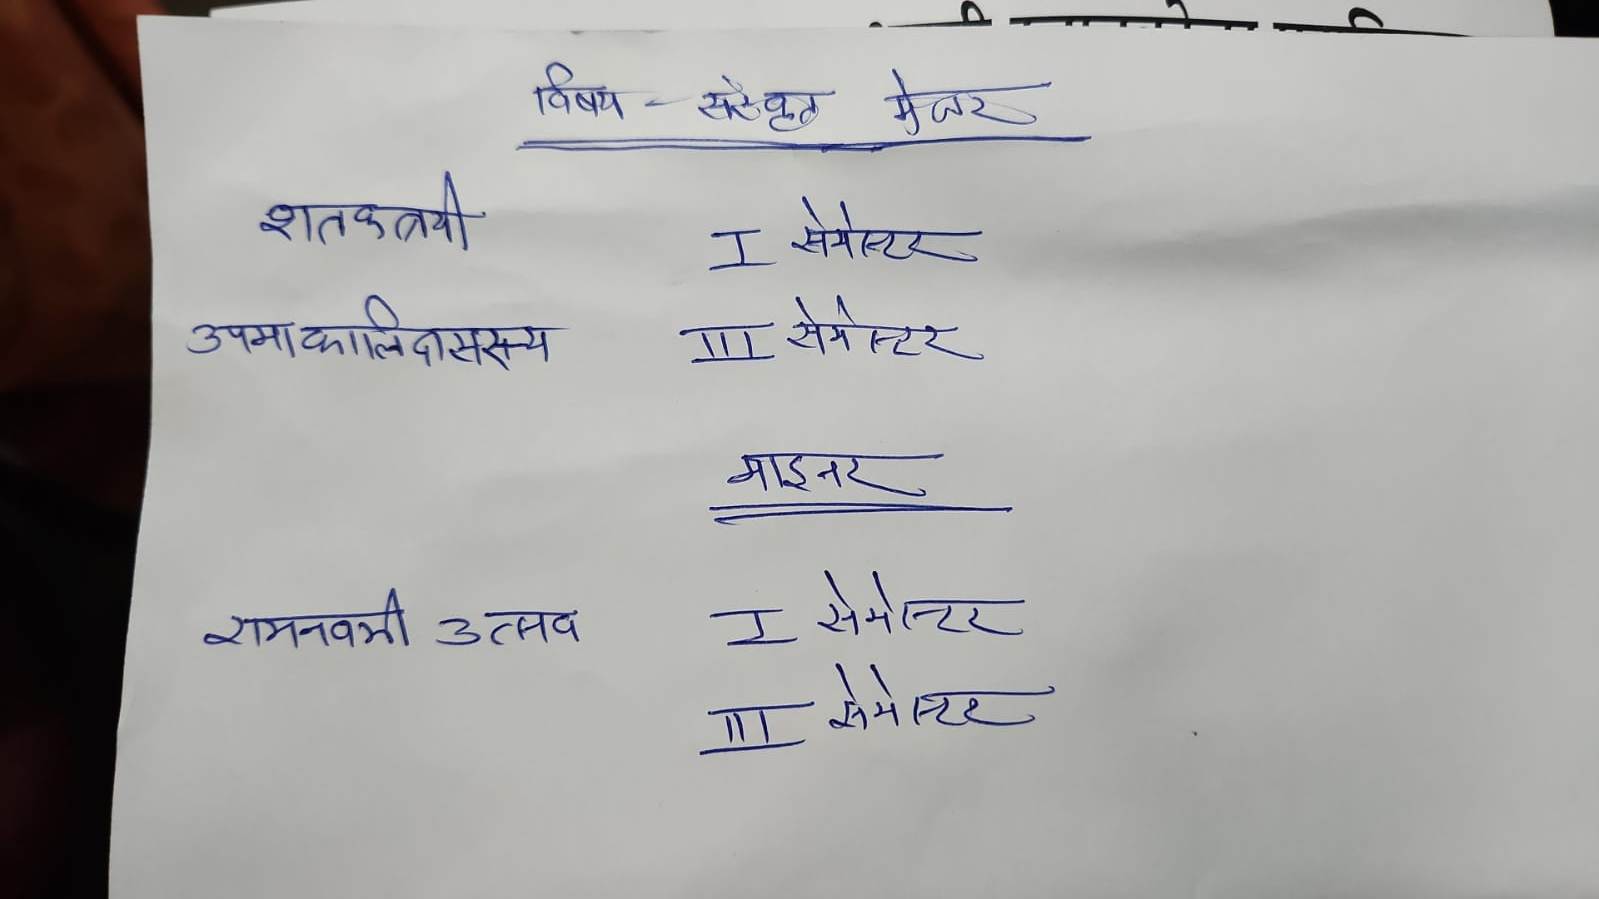 विषय - संस्कृत मेजर
शतकत्रयी I सेमेस्टर
उपमाकालिदासस्य III सेमेस्टर
माइनर
रामनवमी उत्सव I सेमेस्टर
III सेमेस्टर